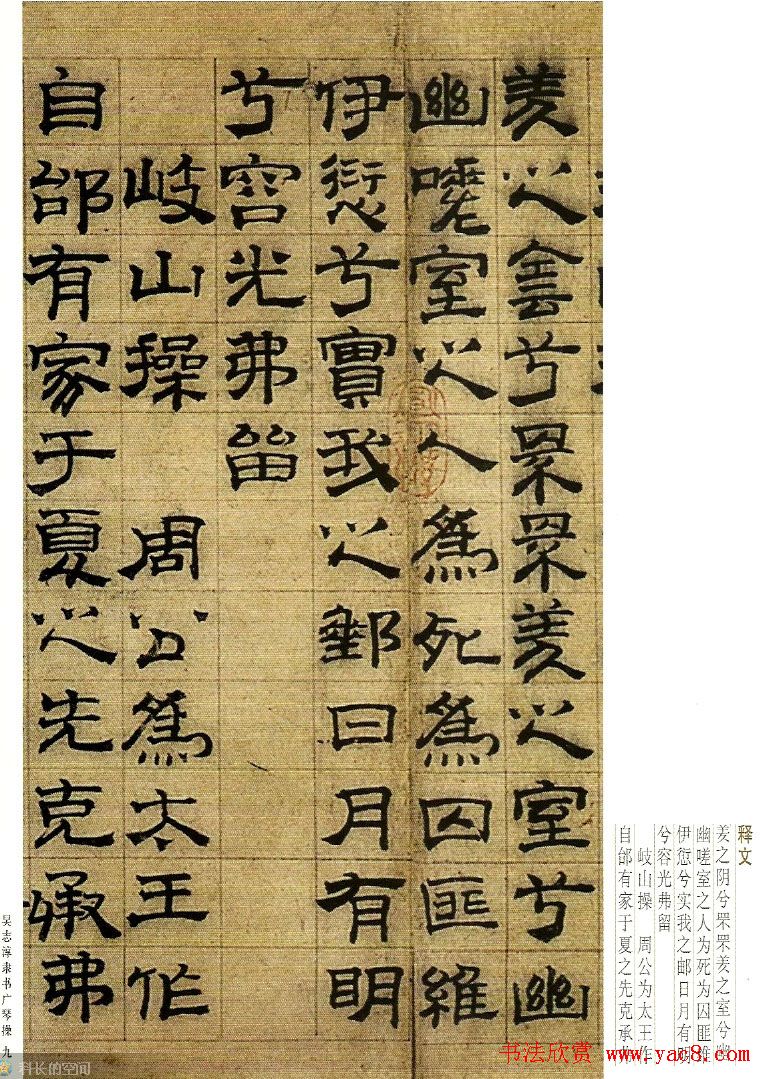 羑之侌兮罘罘羑之室兮幽
幽嗟室之人為死為囚匪維
伊愆兮實我之郵日月有明
兮容光弗留
岐山操 周公為太王作
自邰有家于夏之先克承弗
释文
羑之阴兮罘罘羑之室兮幽
幽嗟室之人为死为囚匪维
伊愆兮实我之邮日月有明
兮容光弗留
岐山操 周公为太王作
自邰有家于夏之先克承弗
吴志淳隶书广琴操 九
科长的空间
书法欣赏 www.yac8.com